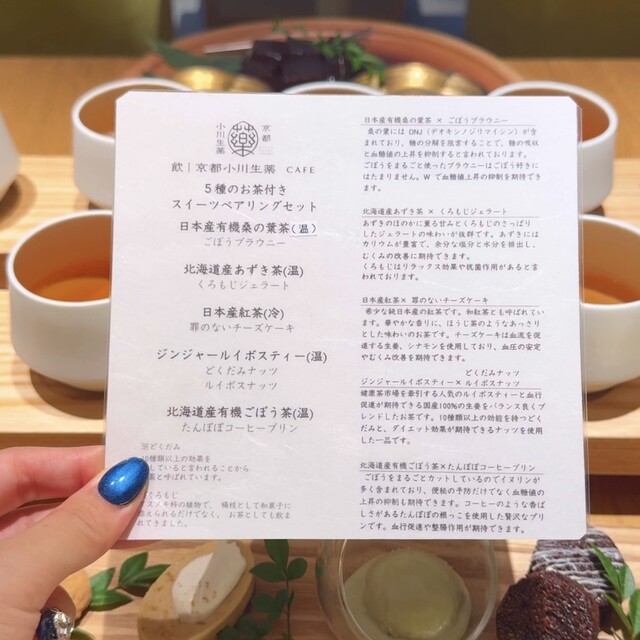 京都
小川生薬
薬
飲｜京都小川生薬 CAFE
5種のお茶付き
スイーツペアリングセット
日本産有機桑の葉茶(温)
ごぼうブラウニー
北海道産あずき茶(温)
くろもじジェラート
日本産紅茶(冷)
罪のないチーズケーキ
ジンジャールイボスティー(温)
どくだみナッツ
ルイボスナッツ
北海道産有機ごぼう茶(温)
たんぽぽコーヒープリン
※どくだみ
10種類以上の効果を
していると言われることから
薬と呼ばれています。
くろもじ
クスノキ科の植物で、楊枝として和菓子に
添えられるだけでなく、お茶としても飲ま
れてきました。
日本産有機桑の葉茶 × ごぼうブラウニー
桑の葉には DNJ（デオキシノジリマイシン）が含
まれており、糖の分解を阻害することで、糖の吸収
と血糖値の上昇を抑制すると言われております。
ごぼうをまるごと使ったブラウニーはごぼう好きに
はたまりません。W で血糖値上昇の抑制が期待でき
ます。
北海道産あずき茶 × くろもじジェラート
あずきのほのかに薫る甘みとくろもじのさっぱり
したジェラートの味わいが抜群です。あずきには
カリウムが豊富で、余分な塩分と水分を排出し、
むくみの改善に期待できます。
くろもじはリラックス効果や抗菌作用があると言
われております。
日本産紅茶× 罪のないチーズケーキ
希少な純日本産の紅茶です。和紅茶とも呼ばれてい
ます。華やかな香りに、ほうじ茶のようなあっさり
とした味わいのお茶です。チーズケーキは血流を促
進する生姜、シナモンを使用しており、血圧の安定
やむくみ改善を期待できます。
どくだみナッツ
ジンジャールイボスティー× ルイボスナッツ
健康茶市場を牽引する人気のルイボスティーと血行
促進が期待できる国産100%の生姜をバランス良くブ
レンドしたお茶です。10種類以上の効能を持つどく
だみと、ダイエット効果が期待できるナッツを使用
した一品です。
北海道産有機ごぼう茶×たんぽぽコーヒープリン
ごぼうをまるごとカットしているのでイヌリンが
多く含まれており、便秘の予防だけでなく血糖値の
上昇の抑制も期待できます。コーヒーのような香ば
しさがあるたんぽぽの根っこを使用した贅沢なプリ
ンです。血行促進や整腸作用が期待できます。